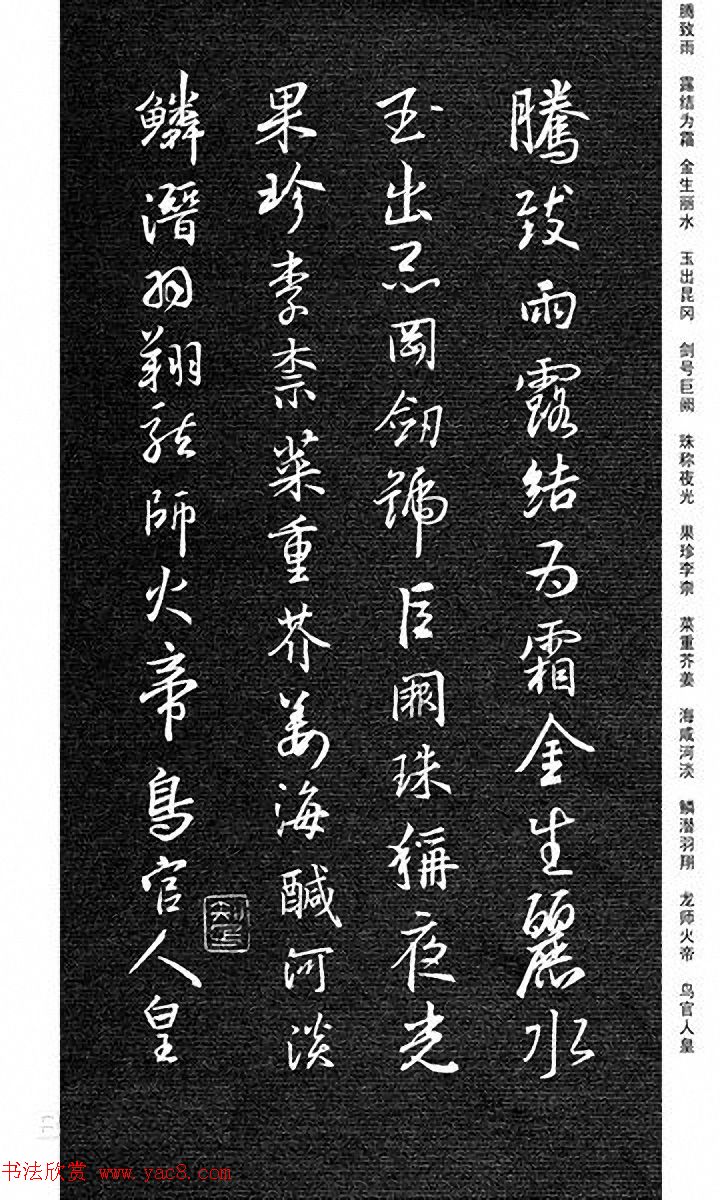 腾致雨 露结为霜 金生丽水 玉出昆冈 剑号巨阙 珠称夜光 果珍李柰 菜重芥姜 海咸河淡 鳞潜羽翔 龙师火帝 鸟官人皇
騰致雨露結為霜金生麗水
玉出崑岡劒號巨闕珠稱夜光
果珍李柰菜重芥薑海醎河淡
鱗潛羽翔龍師火帝鳥官人皇
书法欣赏 www.yac8.com